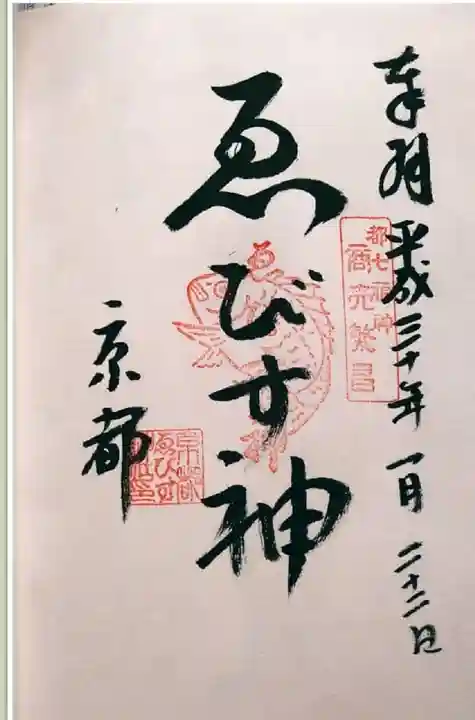 奉拝 平成三十年 一月 二十二日
都七福神
商売繁昌
ゑびす神
京都
京都
ゑびす